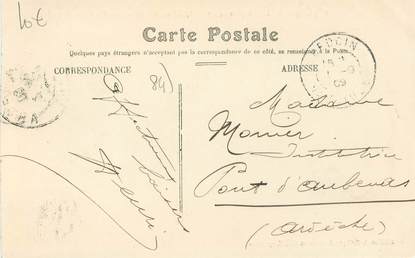 10€
Carte Postale
Quelques pays étrangers n'acceptant pas la correspondance de ce côté, se renseigner à la Poste.
CORRESPONDANCE
ADRESSE
84)
Henri
Madame
Monier
Institutrice
Pont d'aubenas
(Ardèche)